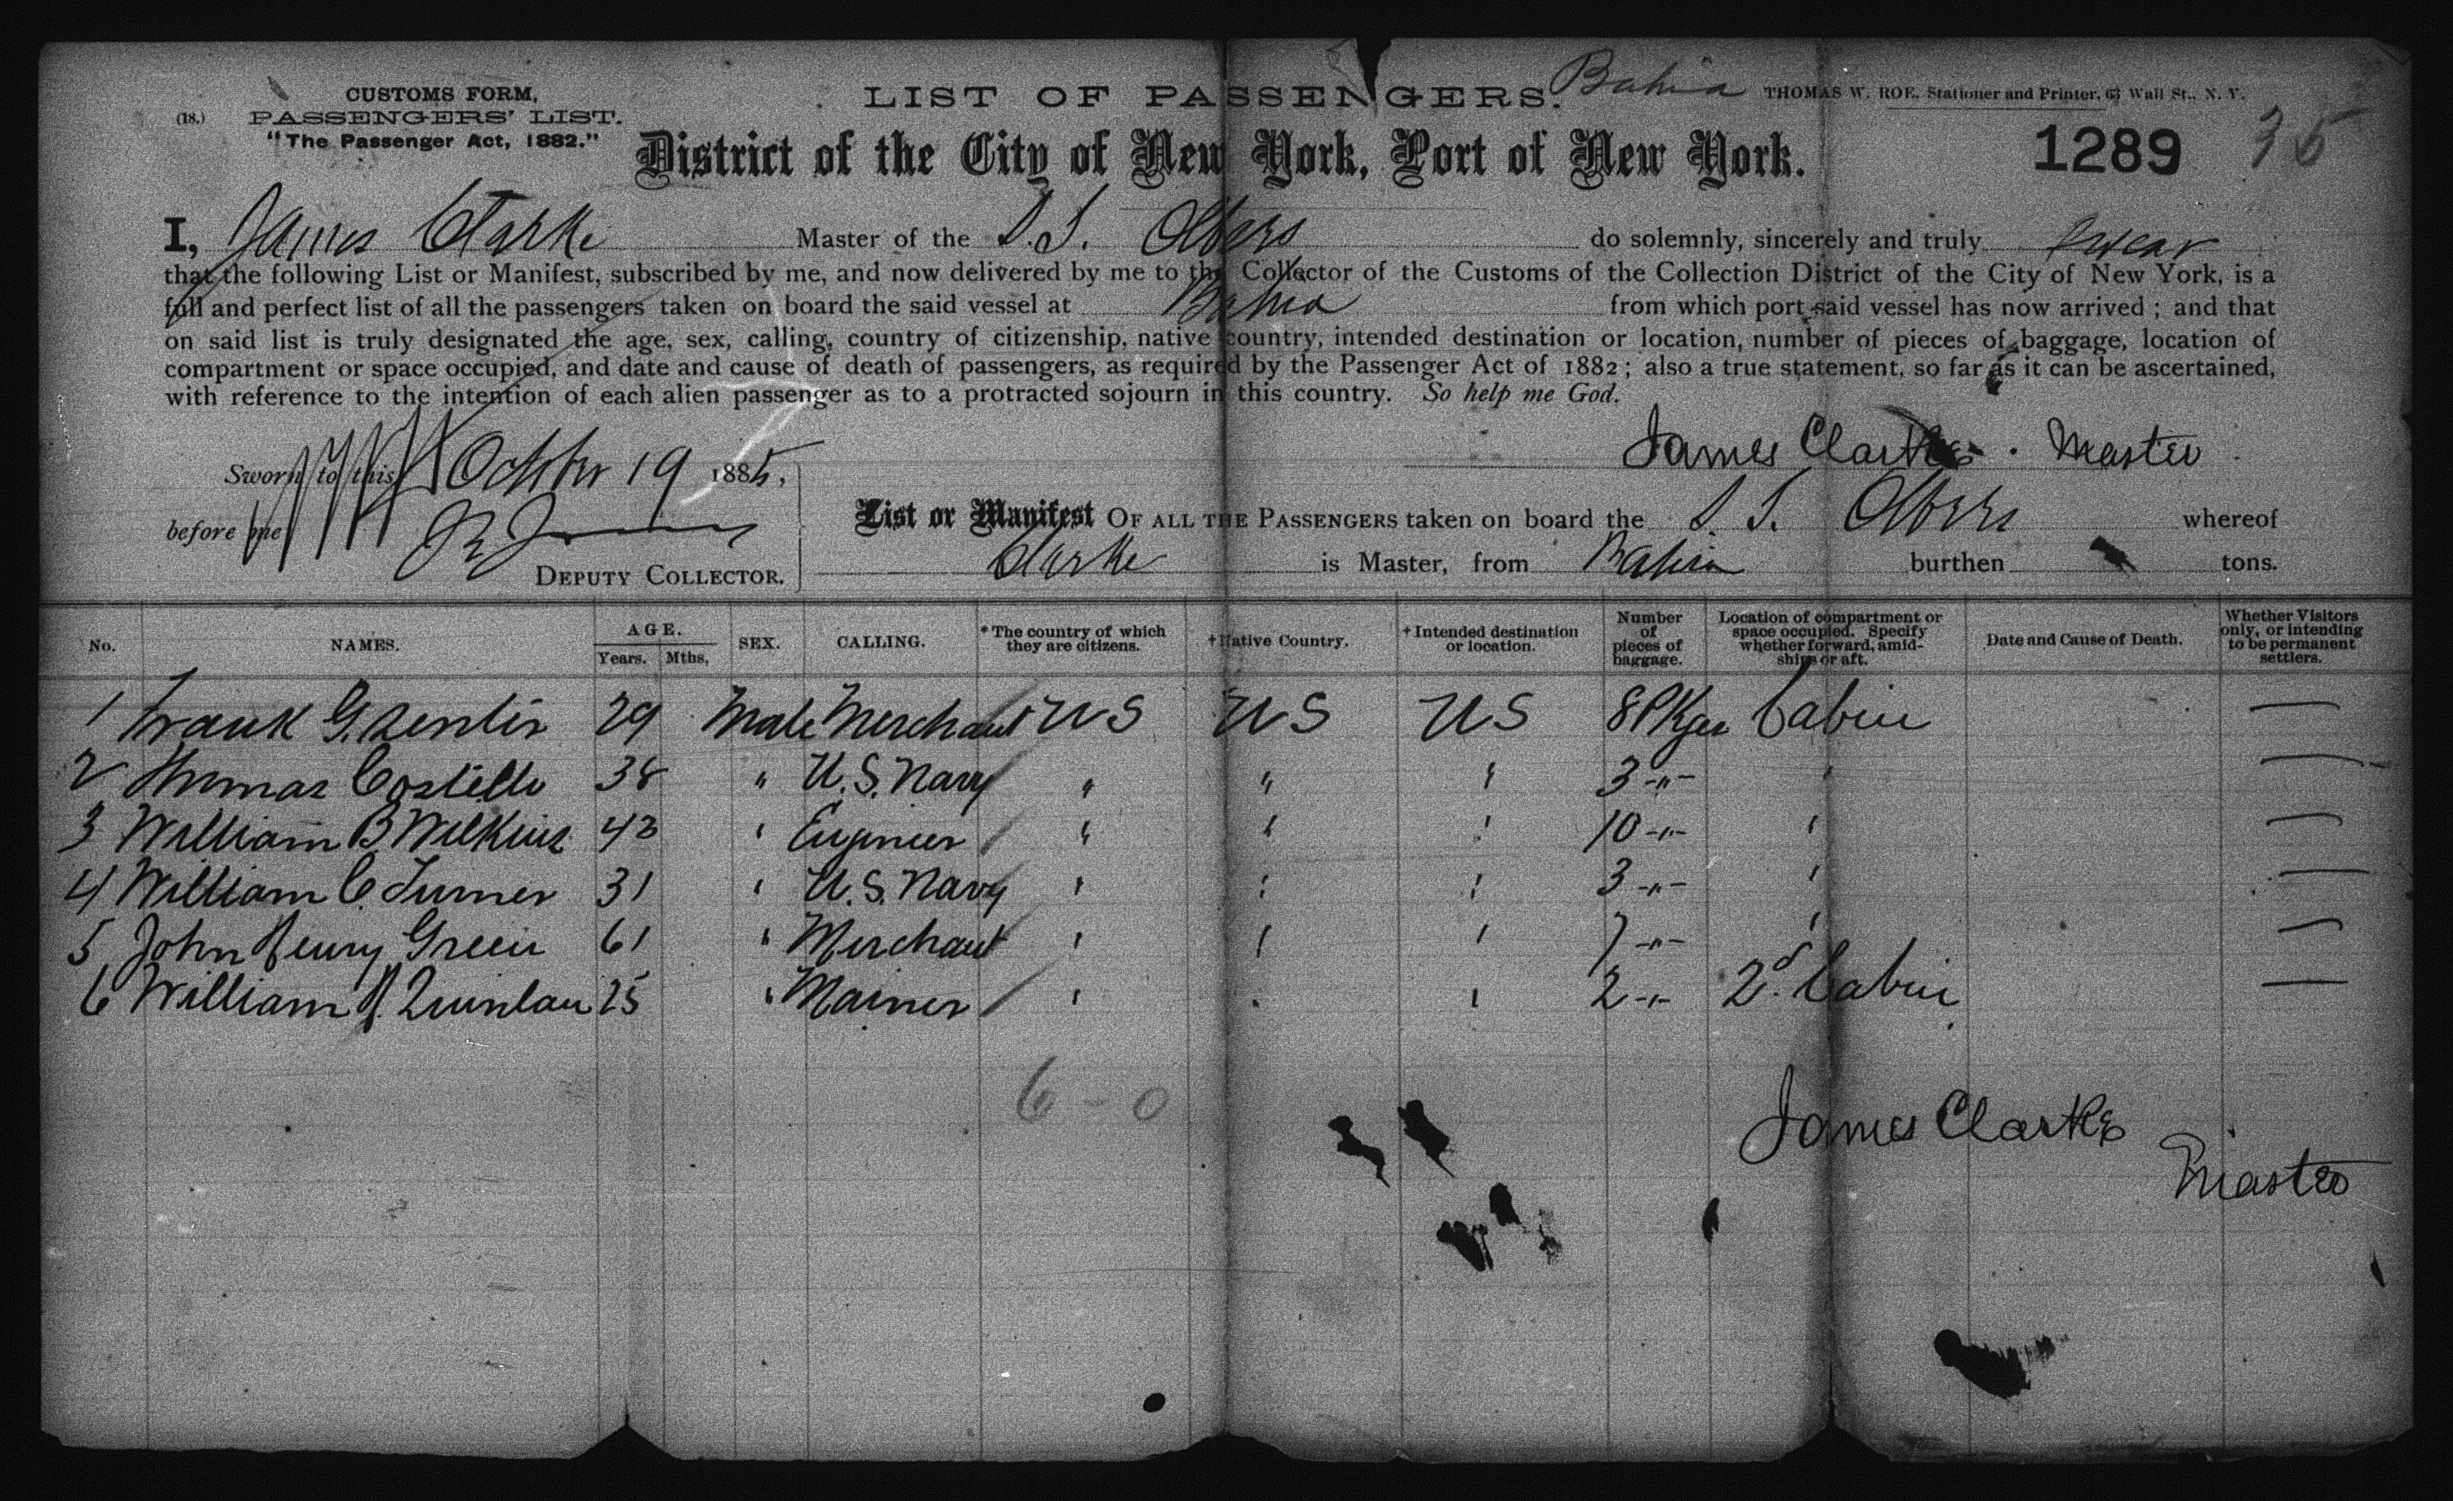 Bahia
CUSTOMS FORM,
(18.) PASSENGERS' LIST.
"The Passenger Act, 1882."
LIST OF PASSENGERS.
THOMAS W. ROE, Stationer and Printer, 63 Wall St., N. Y.
District of the City of New York, Port of New York.
1289 35
I, James Clarke Master of the S.S. Olbers do solemnly, sincerely and truly swear
that the following List or Manifest, subscribed by me, and now delivered by me to the Collector of the Customs of the Collection District of the City of New York, is a
full and perfect list of all the passengers taken on board the said vessel at Bahia from which port said vessel has now arrived ; and that
on said list is truly designated the age, sex, calling, country of citizenship, native country, intended destination or location, number of pieces of baggage, location of
compartment or space occupied, and date and cause of death of passengers, as required by the Passenger Act of 1882 ; also a true statement, so far as it can be ascertained,
with reference to the intention of each alien passenger as to a protracted sojourn in this country. So help me God.
James Clarke. Master
Sworn to this October 19 1885,
before me
DEPUTY COLLECTOR.
List or Manifest OF ALL THE PASSENGERS taken on board the S. S. Olbers whereof
Clarke is Master, from Bahia burthen tons.
No. NAMES. AGE. Years. Mths, SEX. CALLING. *The country of which they are citizens. †Native Country. †Intended destination or location. Number of pieces of baggage. Location of compartment or space occupied. Specify whether forward, amid-ships or aft. Date and Cause of Death. Whether Visitors only, or intending to be permanent settlers.
1 Frank G. 29 Male Merchant US US US 8 Pkgs Cabin —
2 Thomas Costello 38 " U.S. Navy " " " 3 -"- " —
3 William B Wilkins 43 " Engineer " " " 10 -"- " —
4 William C. Turner 31 " U.S. Navy " " " 3 -"- " —
5 John Henry Green 61 " Merchant " " " 7 -"- " —
6 William H. Quinlan 25 " Mariner " " " 2 -"- 2d. Cabin —
6 - 0
James Clarke
Master